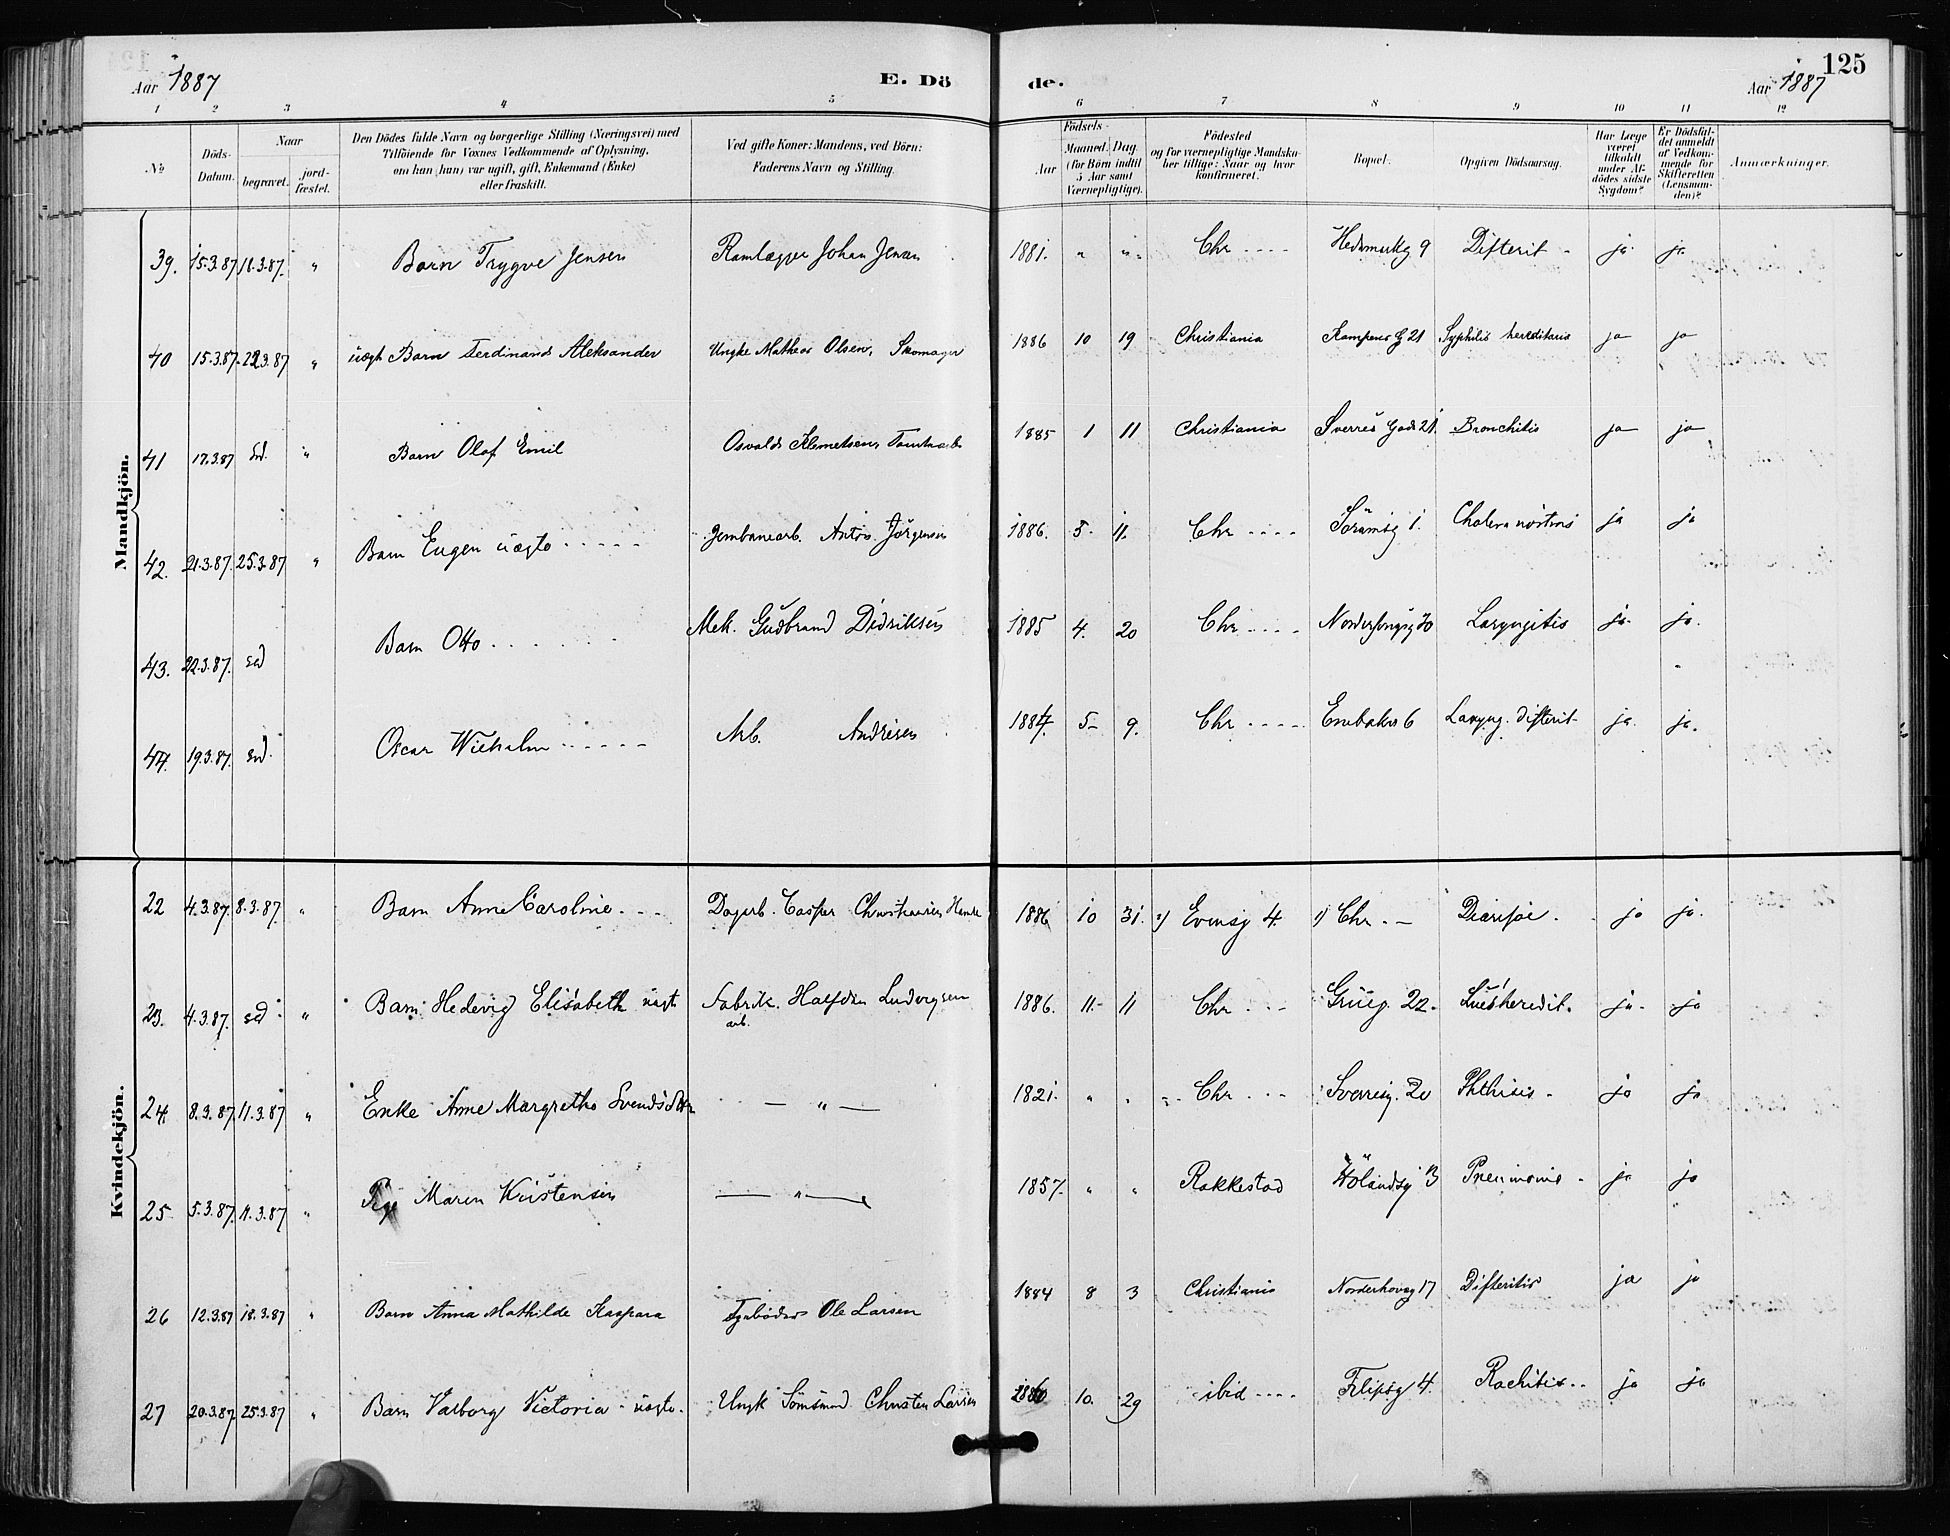 Aar 1887 E. Dö de. Aar 1887 125
1 2 3 4 5 6 7 8 9 10 11 12
No Döds-Datum. Naar begravet. jord-fæstet. Den Dödes fulde Navn og borgerlige Stilling (Næringsvei) med Tilföiende for Voxnes Vedkommende af Oplysning, om han (hun) var ugift, gift, Enkemand (Enke) eller fraskilt. Ved gifte Koner: Mandens, ved Börn: Faderens Navn og Stilling. Födsels- Aar Maaned. Dag. (for Börn indtil 5 Aar samt Værnepligtige). Födested og for værnepligtige Mandskaber tillige: Naar og hvor konfirmeret. Bopæl. Opgiven Dödsaarsag. Har Læge været tilkaldt under Afdödes sidste Sygdom? Er Dödsfaldet anmeldt af Vedkommende for Skifteretten (Lensmanden)? Anmærkninger.
Mandkjön.
39. 15.3.87 18.3.87. " Barn Trygve Jensen Johan Jensen 1881. " " Chr Hedemarkg 9 Difterit ja ja
40 15.3.87 22.3.87 " uægt Barn Ferdinand Aleksander Ungke Matheas Olsen, Skomager 1886 10 19 Christiania Kampens G 21 Syphilis hereditaria ja ja
41 17.3.87 sd. " Barn Olaf Emil Osvald Klemetsen 1885 1 11 Christiania Sverres Gade 21. Bronchitis ja ja
42. 21.3.87. 25.3.87 " Barn Eugen uægte Jernbanearb. Anton Jörgensen 1886. 5 11. Chr Sörumsg 1. Cholera nostras ja ja
43. 22.3.87. sd Barn Otto Mek. Gudbrand Didriksen 1885 4. 20 Chr Laryngitis ja ja.
44. 19.3.87. sd. Oscar Wilhelm Arb. Andresen 1884. 5 9. Chr Enebakv 6 Laryng. difterit ja ja.
Kvindekjön.
22 4.3.87. 8.3.87. " Barn Anne Caroline Dagarb. Casper Christiansen 1886 10 31. 2) Evensg 4. 1) Chr. Diarrhoe ja ja.
23. 4.3.87. sd " Barn Hedevig Elisabeth uægt Fabrik. arb. Halfdan Ludvigsen 1886. 11 11 Chr Grüng. 22. Lues heredit. ja ja
24. 8.3.87. 11.3.87 " Enke Anne Margrethe Svendsdtr — " — 1821. " " Chr Sverresg. 20 Phthisis ja ja
25 5.3.87. 11.3.87 " Pige Maren Kristensen — " — 1857. " " Rakkestad Hölandsg 3 Pneumonie ja ja
26 12.3.87 18.3.87 " Barn Anna Mathilde Kaspara Ole Larsen 1884 8 3 Christiania Norderhovsg 17 Difteritis ja ja
27 20.3.87. 25.3.87 " Barn Valborg Victoria uægte. Ungk Sömand Christen Larsen 10. 29 ibid Filipsg 4. Rachitis ja ja